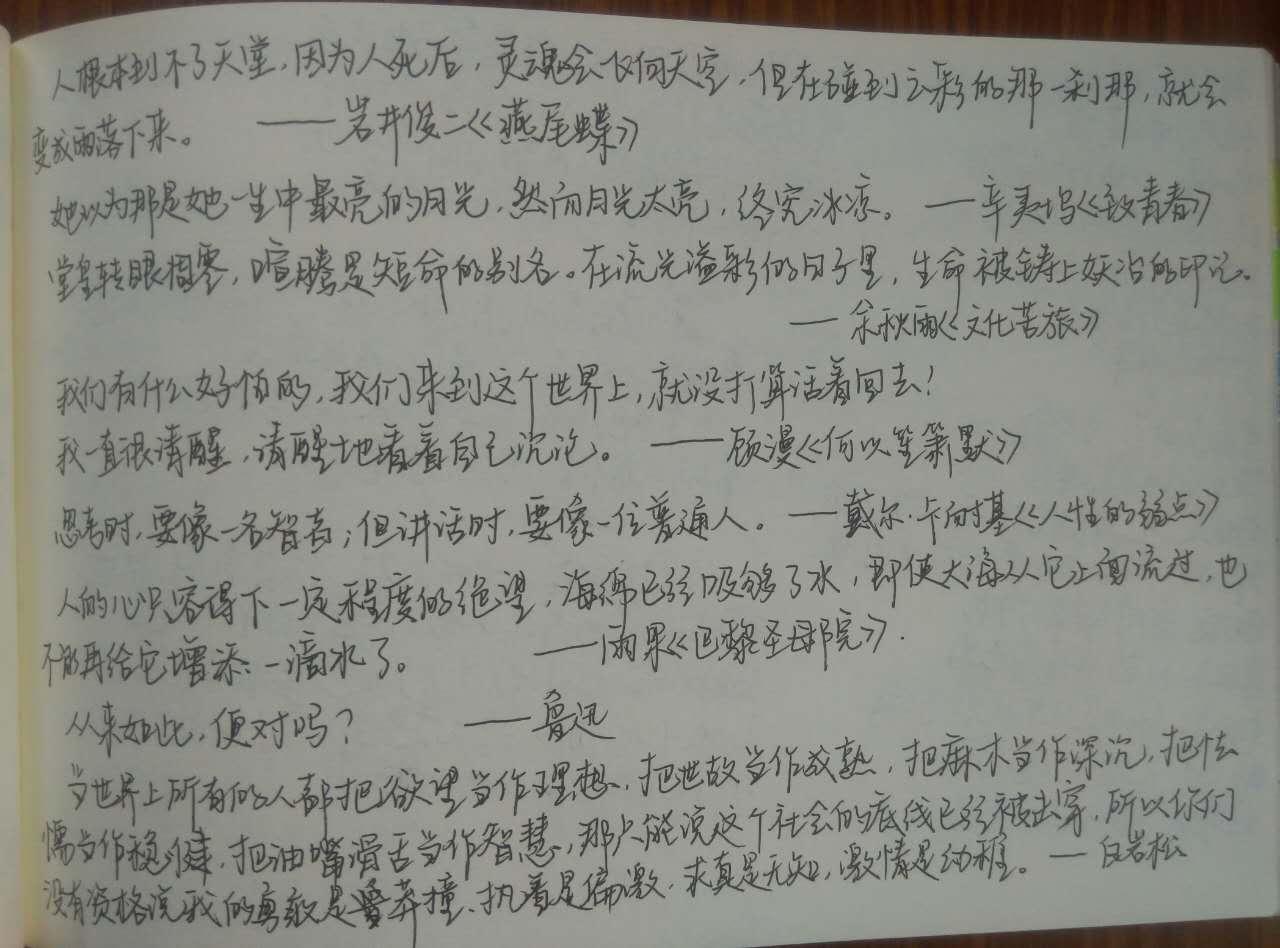 人根本到不了天堂，因为人死后，灵魂会飞向天空，但在碰到云彩的那一刹那，就会
变成雨落下来。 ——岩井俊二《燕尾蝶》
她以为那是她一生中最亮的月光，然而月光太亮，终究冰凉。 ——辛夷坞《致青春》
堂皇转眼凋零，喧腾是短命的别名。在流光溢彩的日子里，生命被铸上妖冶的印记。
——余秋雨《文化苦旅》
我们有什么好怕的，我们来到这个世界上，就没打算活着回去！
我一直很清醒，清醒地看着自己沉沦。 ——顾漫《何以笙箫默》
思考时，要像一名智者；但讲话时，要像一位普通人。 ——戴尔·卡耐基《人性的弱点》
人的心只容得下一定程度的绝望，海绵已经吸够了水，即使大海从它上面流过，也
不能再给它增添一滴水了。 ——雨果《巴黎圣母院》.
从来如此，便对吗？ ——鲁迅
当世界上所有的人都把欲望当作理想，把世故当作成熟，把麻木当作深沉，把怯
懦当作稳健，把油嘴滑舌当作智慧，那只能说这个社会的底线已经被击穿，所以你们
没有资格说我的勇敢是鲁莽撞、执着是偏激、求真是无知，激情是幼稚。 ——白岩松